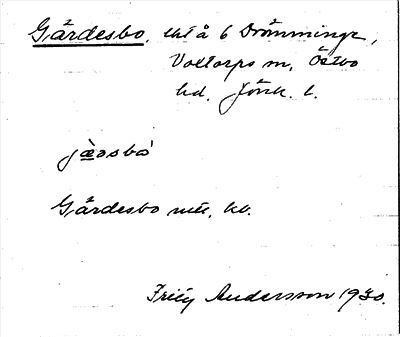 Gärdesbo, tht å 6 Drömminge,
Voxtorps sn, Östbo
hd. Jönk. l.
jæ̀ɑsbo
Gärdesbo mtl, kb.
Fritz Andersson 1930.